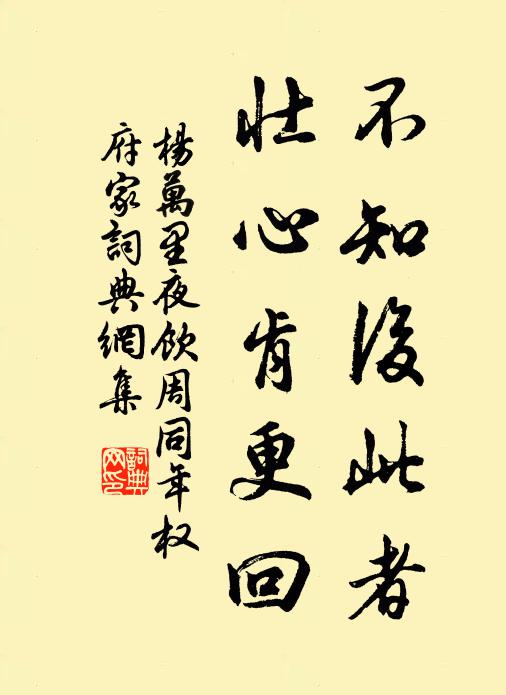 不知後此者
壮心肯更回
楊萬里夜飲周同年权
府家詞典網集
詞典
网印